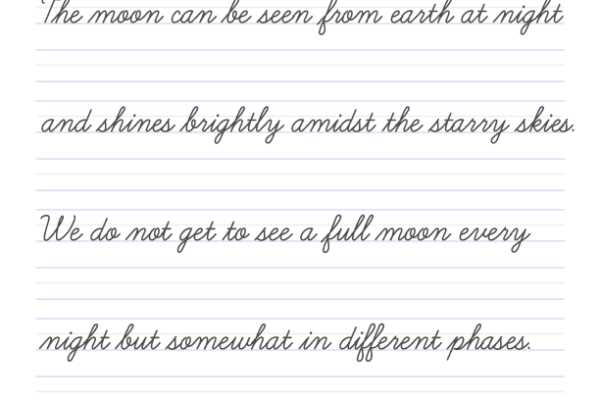 The moon can be seen from earth at night
and shines brightly amidst the starry skies.
We do not get to see a full moon every
night but somewhat in different phases.